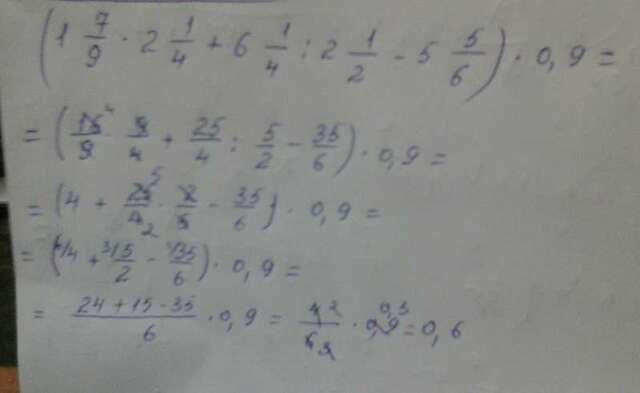 (1 7/9 · 2 1/4 + 6 1/4 : 2 1/2 - 5 5/6) · 0,9 =
= (16/9 9/4 + 25/4 : 5/2 - 35/6) · 0,9 =
= (4 + 25/4 · 2/5 - 35/6) · 0,9 =
= (4 + 5/2 - 35/6) · 0,9 =
= (24 + 15 - 35)/6 · 0,9 = 4/6 · 0,9 = 0,6